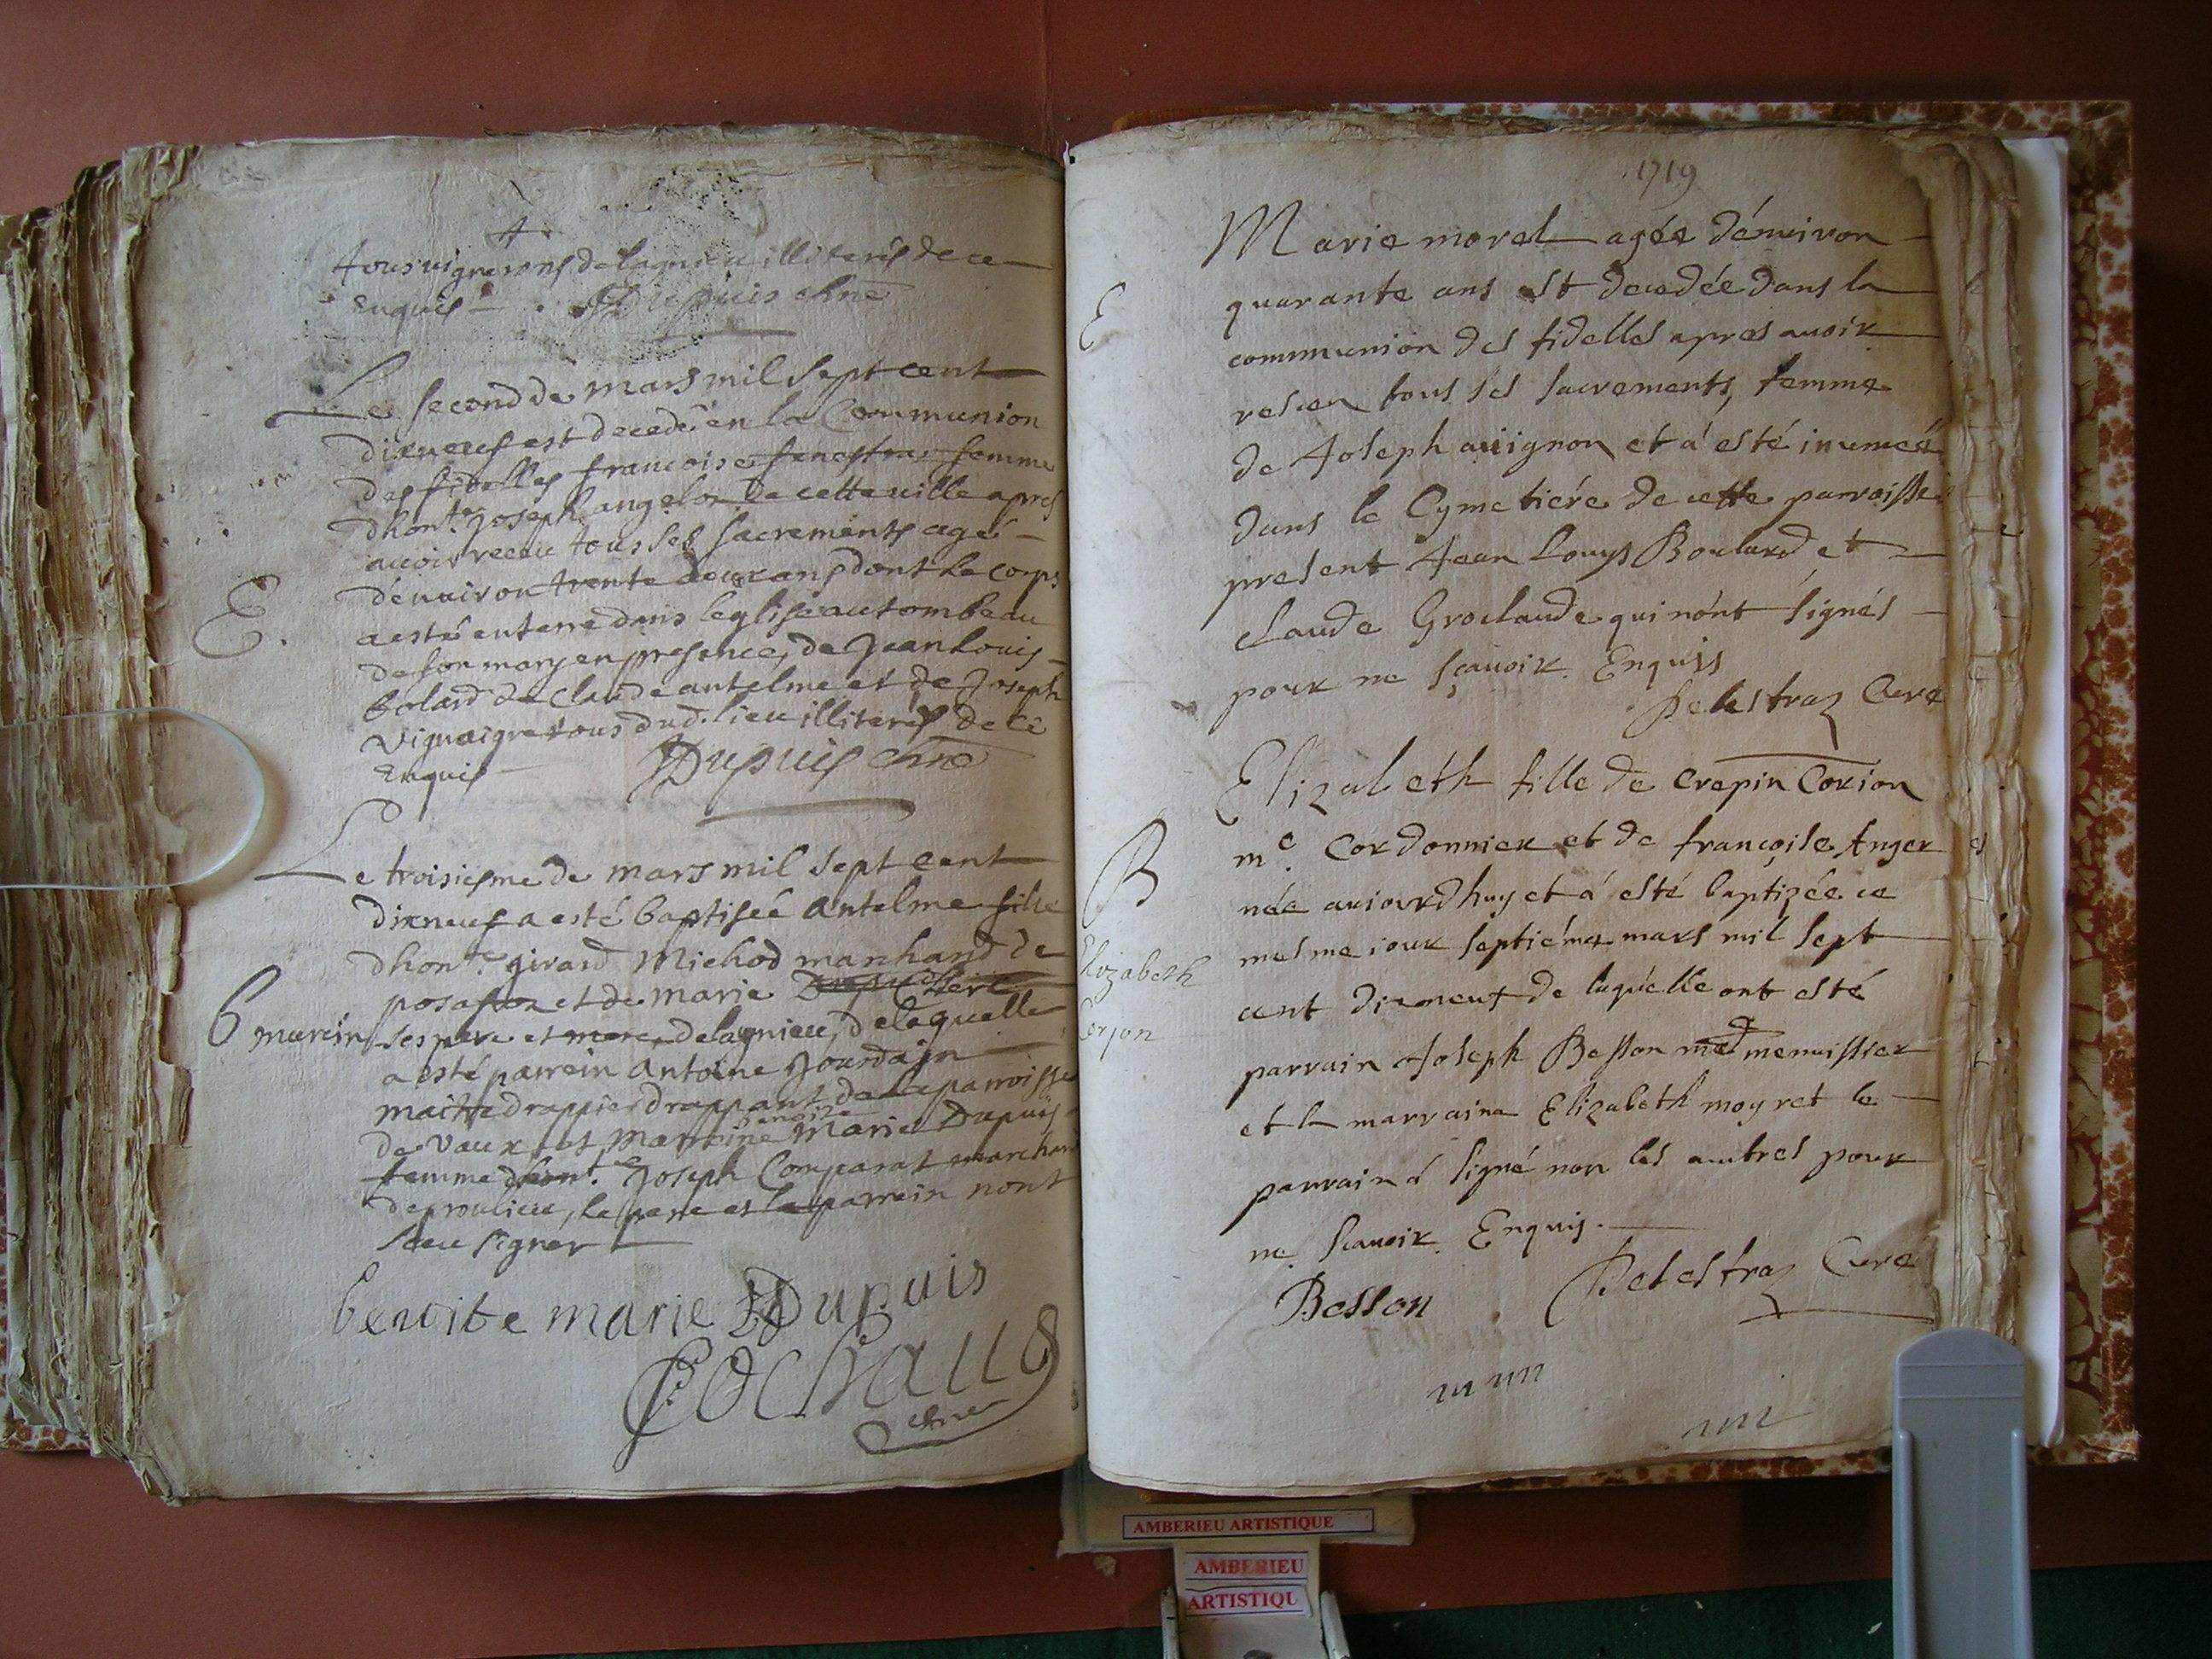 tous vignerons de lagnieu illiterés de ce
Enquis — . Dupuis chne
Le second de mars mil sept cent
dixneuf est decedée en la Communion
des fidelles francoise fenestraz femme
dhon.te Joseph angelot de cette ville apres
avoir receu tous ses sacrements agé
dénuiron trente deux ans dont le corps
E.
a esté enterré dans leglise au tombeau
de son mary en presence de Jean Louis
bolard de Claude antelme et de Joseph
vignaigre tous dud. lieu illiterés de ce
Enquis — Dupuis chne
Le troisiesme de mars mil sept cent
dixneuf a esté baptisée antelme fille
dhon.te girard Michod marchand de
posafon et de marie
B
marein ses pere et mere, de lagnieu, de laquelle
a esté parrein antoine Jourdain
maitre drappier drappant de la parroisse
de Vaux et marreine benoite marie Dupuis
femme dhon.te Joseph Comparat marchand
de proulieu, le pere et le parrein nont
sceu signer
benoite marie Dupuis
Cochaud
chne
1719
Marie morel agée dénuiron
quarante ans est decedée dans la
E
communion des fidelles apres auoir
reseu tous ses sacrements, femme
de Joseph auignon et a' esté inumeé
dans le Cymetiére de cette parroisse
present Jean Louys Boulard et
claude Groclaude qui nónt signés
pour ne sçauoir. Enquis
Delestraz Curé
Elizabeth fille de Crepin Corion
m.e Cordonnier et de françoise Anger
B
née auiourdhuy et a' esté baptizée ce
Elizabeth
mesme iour septiéme mars mil sept
cent dixneuf de laquelle ont esté
Corjon
parrain Joseph Besson md menuissier
et la marraine Elizabeth moyret le
parrain á signé non les autres pour
ne sçauoir. Enquis.
Besson Delestraz Curé
AMBERIEU ARTISTIQUE
AMBERIEU
ARTISTIQU